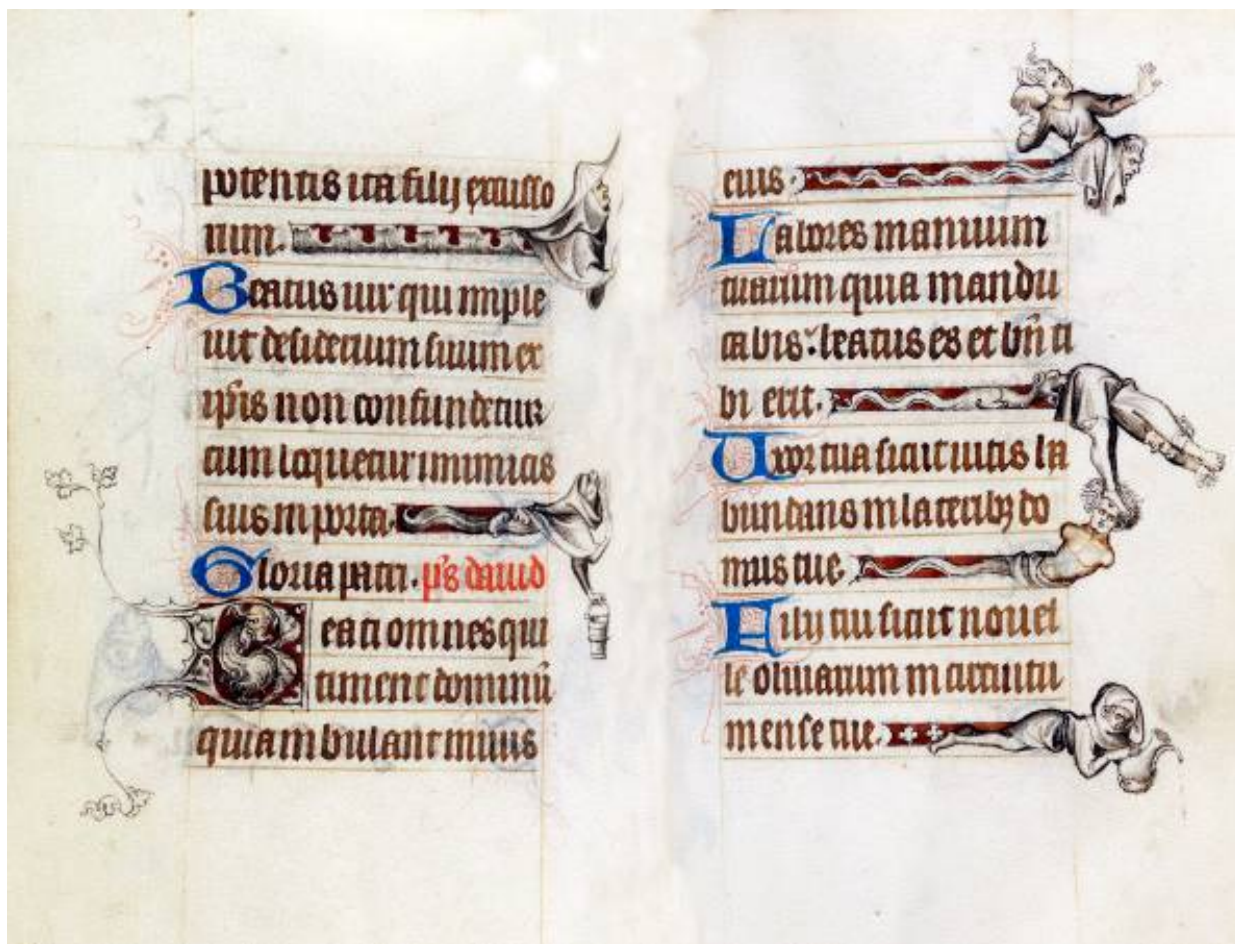 potentis ita filij excusso
rum.
Beatus uir qui imple
uit desiderium suum ex
ip̃is non confundetur
cum loquetur inimicis
suis in porta.
Gloria patri. p̃s dauid
Beati omnes qui
timent dominũ
qui ambulant in uiis
eius.
Labores manuum
tuarum quia mandu
cabis: beatus es et bñ ti
bi erit.
Uxor tua sicut uitis ha
bundans in lateribꝫ do
mus tue.
Filij tui sicut nouel
le oliuarum in circuitu
mense tue.